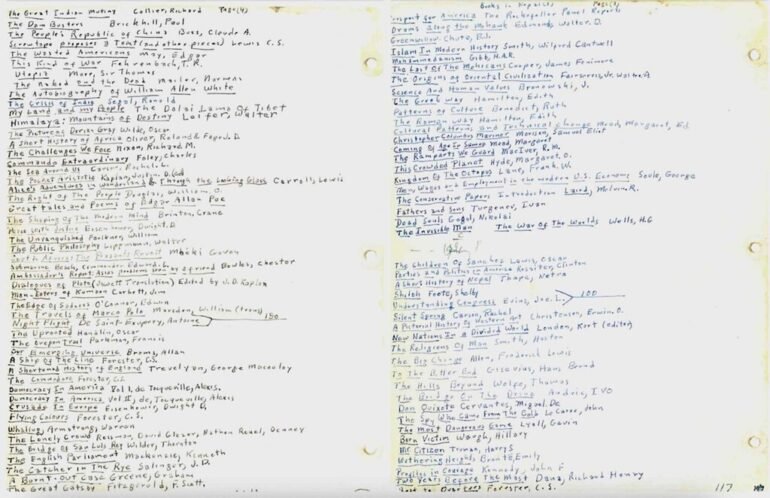 The Great Indian Mutiny Collier, Richard Page(4)
The Dam Busters Brickhill, Paul
The People's Republic of China Buss, Claude A.
Screwtape proposes a Toast (and other pieces) Lewis C.S.
The Wasted Americans May, Edgar
This Kind of War Fehrenbach, T.R.
Utopia More, Sir Thomas
The Naked and the Dead Mailer, Norman
The Autobiography of William Allen White
The Crisis of India Segal, Ronald
My Land and my People The Dalai Lama Of Tibet
Himalaya: Mountains of Destiny Walter
The Picture of Dorian Gray Wilde, Oscar
A Short History of Africa Oliver, Roland & Fage, J. D.
The Challenges We Face Nixon, Richard M.
Commando Extraordinary Foley, Charles
The Sea Around Us Carson, Rachel L.
The Pocket Aristotle Kaplan, Justin D. (ed)
Alice's Adventures in Wonderland & Through the Looking Glass Carroll, Lewis
The Right of The People Douglas, William O.
Great tales and Poems of Edgar Allan Poe
The Shaping Of The Modern Mind Brinton, Crane
Eisenhower, Dwight D.
The Unvanquished Faulkner, William
The Public Philosophy Lippmann, Walter
South Africa: The Peasants Revolt Mbeki Govan
Submarine Beach, Commander Edward L.
Ambassador's Report: Asias problems seen by a friend Bowles, Chester
Dialogues of Plato (Jowett Translation) Edited by J.D. Kaplan
Man-Eaters of Kumaon Corbett, Jim
The Edge of Sadness O'Connor, Edwin
The Travels of Marco Polo Marsden, William (trans)
Night Flight De Saint-Exupery, Antoine 150
The Uprooted Handlin, Oscar
The Oregon Trail Parkman, Francis
Our Emerging Universe Broms, Allan
A Ship Of The Line Forester, C.S.
A Shortened History of England Trevelyan, George Macaulay
The Commodore Forester, C.S.
Democracy In America Vol I, de Tocqueville, Alexis.
Democracy In America Vol II, de Tocqueville, Alexis
Crusade In Europe Eisenhower, Dwight D.
Flying Colours Forester, C.S.
Whaling Armstrong, Warren
The Lonely Crowd Riesman, David Glazer, Nathan Reuel, Denney
The Bridge of San Luis Rey Wilder, Thornton
The English Parliament Mackenzie, Kenneth
The Catcher In The Rye Salinger, J.D.
A Burnt-Out Case Greene, Graham
The Great Gatsby Fitzgerald, F. Scott,
Books in Page(5)
Prospect for America The Rockefeller Panel Reports
Drums Along the Mohawk Edmonds, Walter D.
Greenwillow Chute, B.J.
Islam In Modern History Smith, Wilfred Cantwell
Mohammedanism Gibb, H.A.R.
The Last Of The Mohicans Cooper, James Fenimore
The Origins of Oriental Civilization Fairservis, Jr. Walter A
Science And Human Values Bronowski, J.
The Greek Way Hamilton, Edith
Patterns of Culture Benedict, Ruth
The Roman Way Hamilton, Edith
Cultural Patterns and Technical Change Mead, Margaret, Ed.
Christopher Columbus Mariner Morison, Samuel Eliot
Coming Of Age In Samoa Mead, Margaret
The Ramparts We Guard MacIver, R.M.
This Crowded Planet Hyde, Margaret, O.
Kingdom Of The Octopus Lane, Frank, W.
Men, Wages and Employment in the modern U.S. Economy Soule, George
The Conservative Papers Introduction Laird, Melvin, R.
Fathers and Sons Turgenev, Ivan
Dead Souls Gogol, Nikolai
The Invisible Man The War Of The Worlds Wells, H.G
The Children Of Sanchez Lewis, Oscar
Parties and Politics in America Rossiter, Clinton
A Short History of Nepal Thapa, Netra
Shiloh Foote, Shelby
Understanding Congress Evins, Joe L. 100
Silent Spring Carson, Rachel
A Pictorial History of Western Art Christensen, Erwin, O.
New Nations In a Divided World London, Kurt (editor)
The Religions Of Man Smith, Huston
The Big Change Allen, Frederick Lewis
To The Bitter End Gisevius, Hans Bernd
The Hills Beyond Wolfe, Thomas
The Bridge On The Drina Andric, IVO
Don Quixote Cervantes, Miguel De
The Spy Who Came From The Cold Le Carre, John
The Most Dangerous Game Lyall, Gavin
Born Victim Waugh, Hillary
Mr Citizen Truman, Harry S
Wuthering Heights Bronte, Emily
Profiles in Courage Kennedy, John F
Two Years Before The Mast Dana, Richard Henry
Forester, C.S.
117